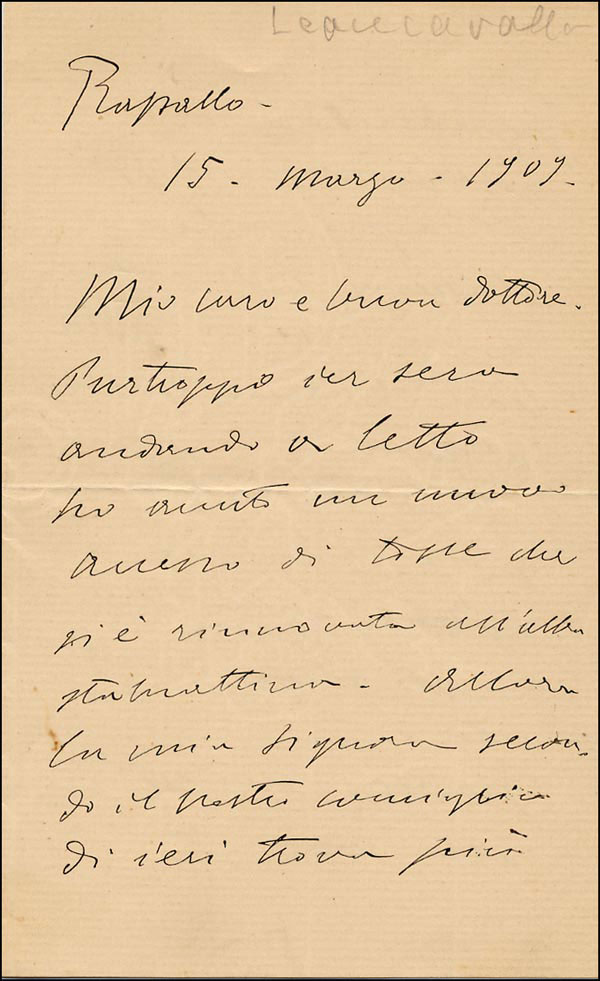 Leoncavallo
Rapallo -
15 - marzo - 1909 -
Mio caro e buon dottore.
Purtroppo ier sera
andando a letto
ho avuto un nuovo
accesso di tosse che
si è rinnovata all'alba
stamattina - Allora
la mia Signora secon-
do il vostro consiglio
di ieri trova più